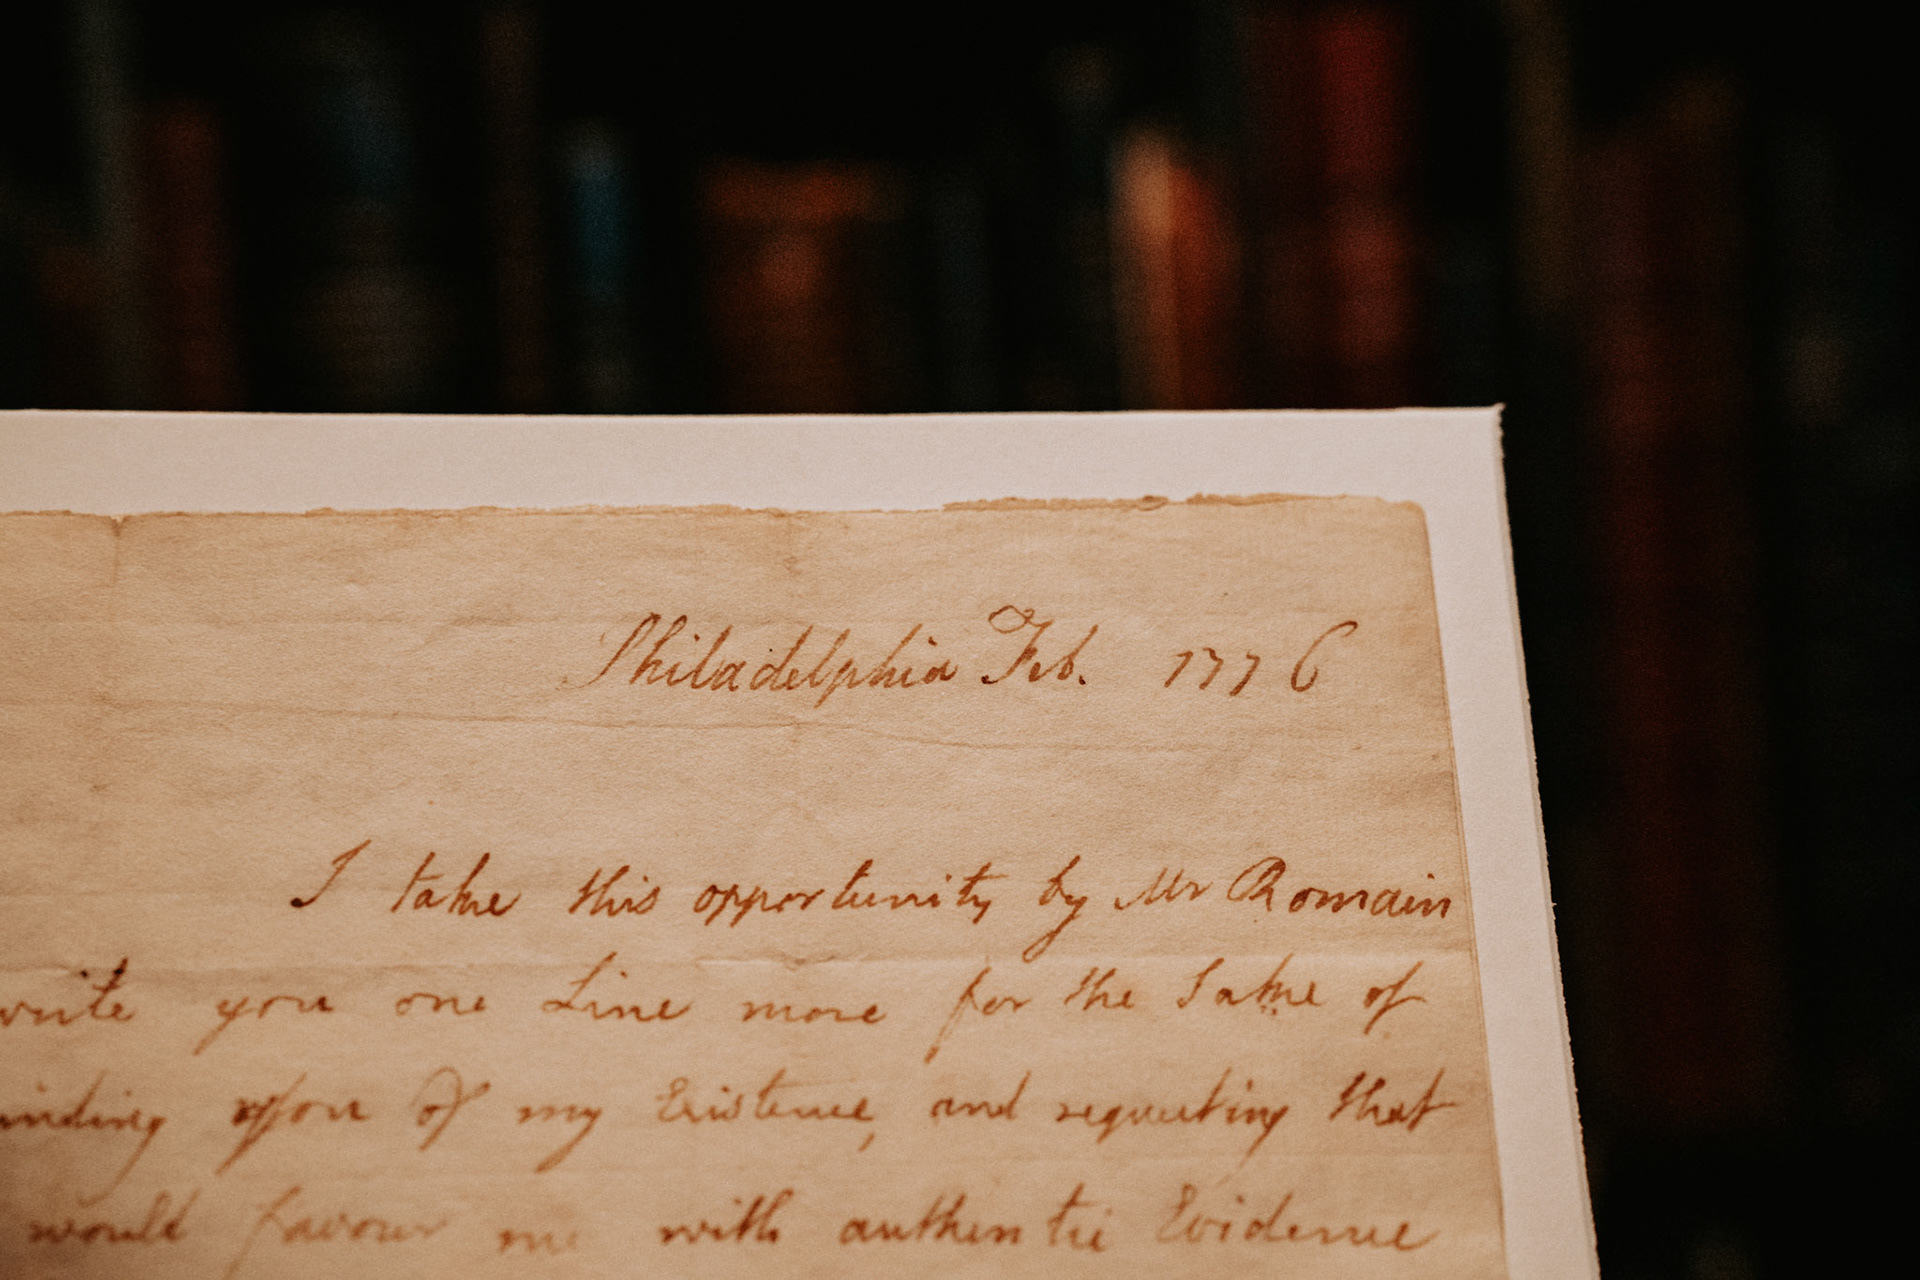 Philadelphia Feb. 1776
I take this opportunity by Mr Romain
write you one Line more for the Sake of
inding you of my Existence, and requesting that
would favour me with authentic Evidence